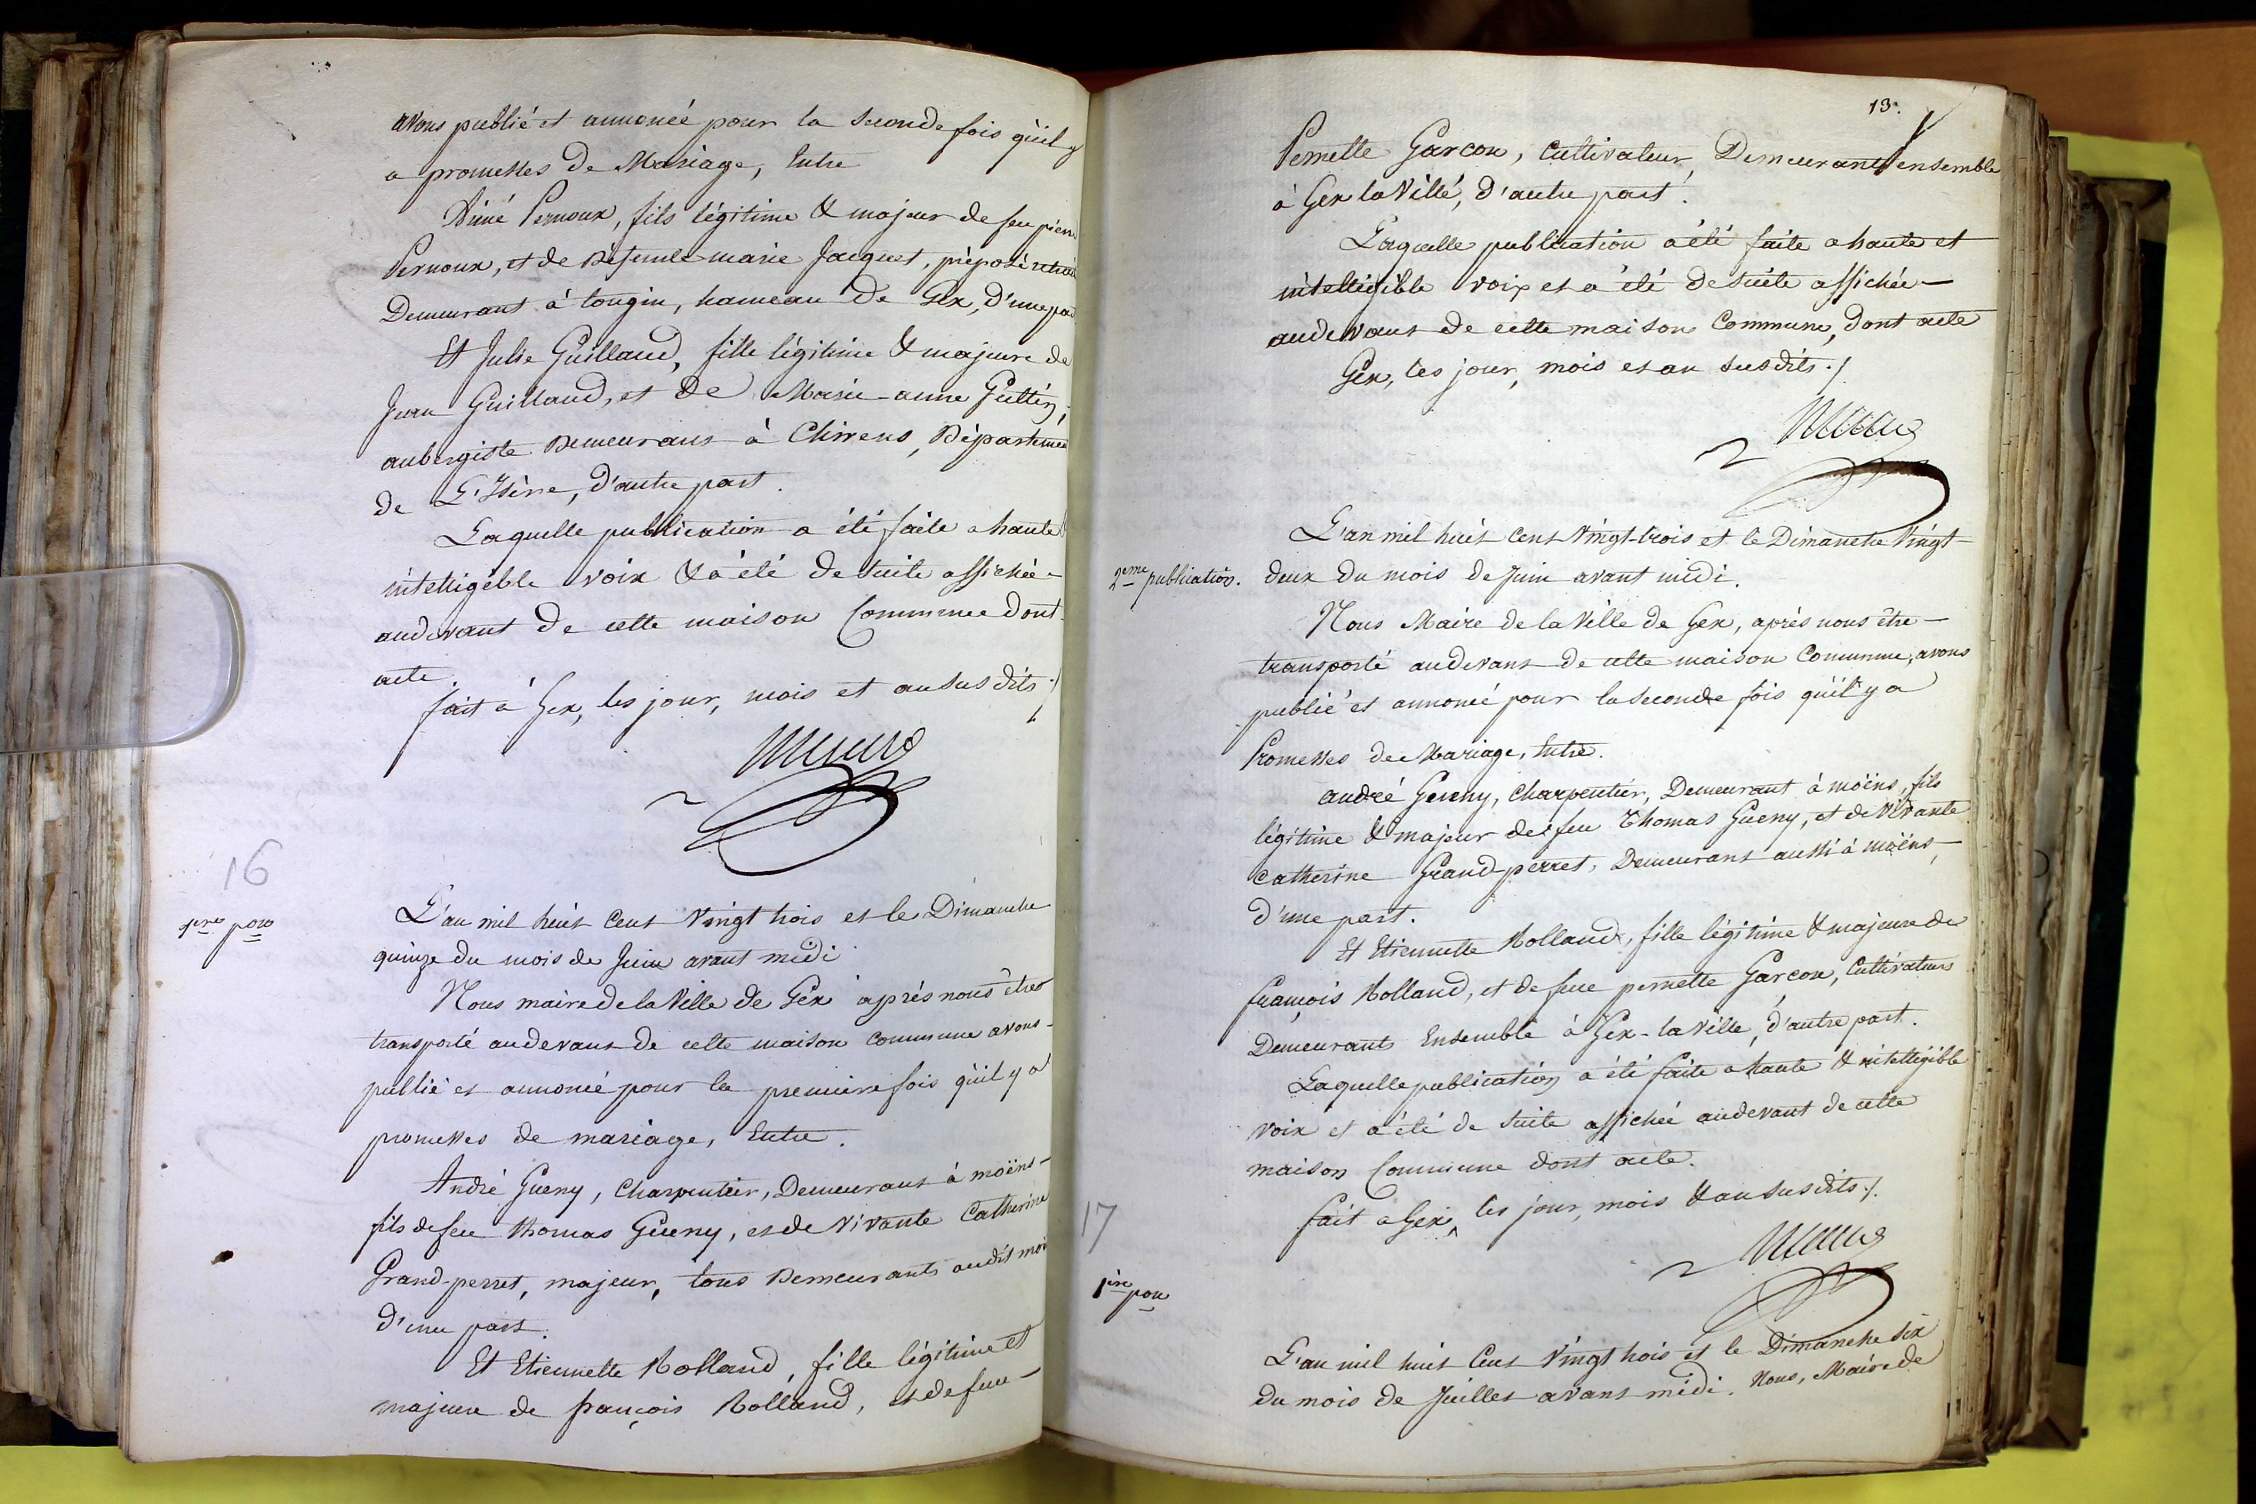 avons publié et annoncé pour la seconde fois qu'il y
a promesses de Mariage, Entre
Aimé Pernoux, fils légitime & majeur de feu pierre
Pernoux, et de Défunte marie Jacquet, préposé retraité
Demeurant à tougin, hameau de Gex, d'une part
Et Julie Guillaud, fille légitime & majeure de
Jean Guillaud, et de Marie-anne Guttin,
aubergiste Demeurans à Chirens, Département
de L'Isère, d'autre part.
Laquelle publication a été faite a haute &
intelligible voix & a été de suite affichée
audevant de cette maison Commune dont
acte.
fait à Gex, les jour, mois et an susdits ./
16
1ere pon
L'an mil huit cent vingt trois et le Dimanche
quinze du mois de Juin avant midi
Nous maire de la Ville de Gex après nous être
transporté audevant de cette maison commune avons
publié et annoncé pour la première fois qu'il y a
promesses de mariage, Entre.
André Gueny, Charpentier, Demeurant à moëns
fils de feu thomas Gueny, et de vivante Catherine
Grand-perret, majeur, tous Demeurants audit moëns
d'une part.
Et Etiennette Rolland, fille légitime et
majeure de françois Rolland, et de feue
13.
Pernette Garcon, Cultivateur, Demeurant ensemble
à Gex la Ville, d'autre part.
Laquelle publication a été faite a haute et
intelligible voix et a été de suite affichée
audevant de cette maison Commune, dont acte
Gex, les jour, mois et an susdits ./
2eme publication.
L'an mil huit cent vingt-trois et le Dimanche vingt-
deux du mois de Juin avant midi.
Nous Maire de la Ville de Gex, après nous être
transporté audevant de cette maison Commune, avons
publié et annoncé pour la seconde fois qu'il y a
Promesses de Mariage, Entre.
andré Gueny, Charpentier, Demeurant à moëns, fils
légitime & majeur de feu Thomas Gueny, et de vivante
Catherine Grand-perret, Demeurant aussi à moëns,
d'une part.
Et Etiennette Rolland, fille légitime & majeure de
françois Rolland, et de feue pernette Garcon, Cultivateurs
Demeurants Ensemble à Gex-la Ville, d'autre part.
Laquelle publication a été faite a haute & intelligible
voix et a été de suite affichée audevant de cette
maison Commune dont acte.
fait a Gex, les jour, mois & an susdits ./
17
1ère pon
L'an mil huit Cent vingt trois et le Dimanche six
du mois de Juillet avant midi. Nous, Maire de